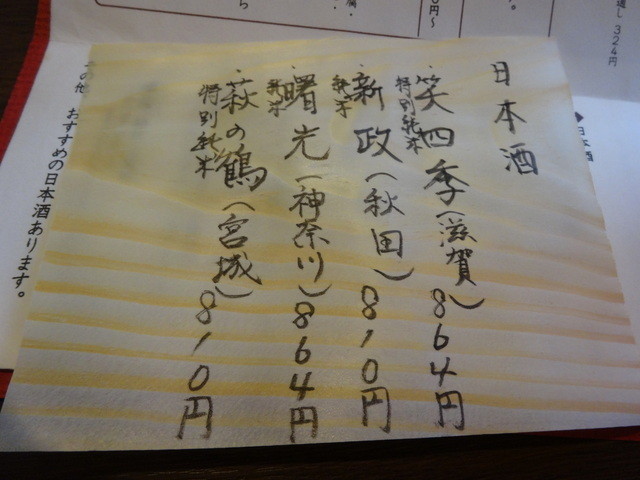 日本酒
・笑四季(滋賀)864円
特別純米
・新政(秋田)810円
純米
・曙光(神奈川)864円
純米
・萩の鶴(宮城)810円
特別純米
その他 おすすめの日本酒あります。
通し 324円
◆日本酒